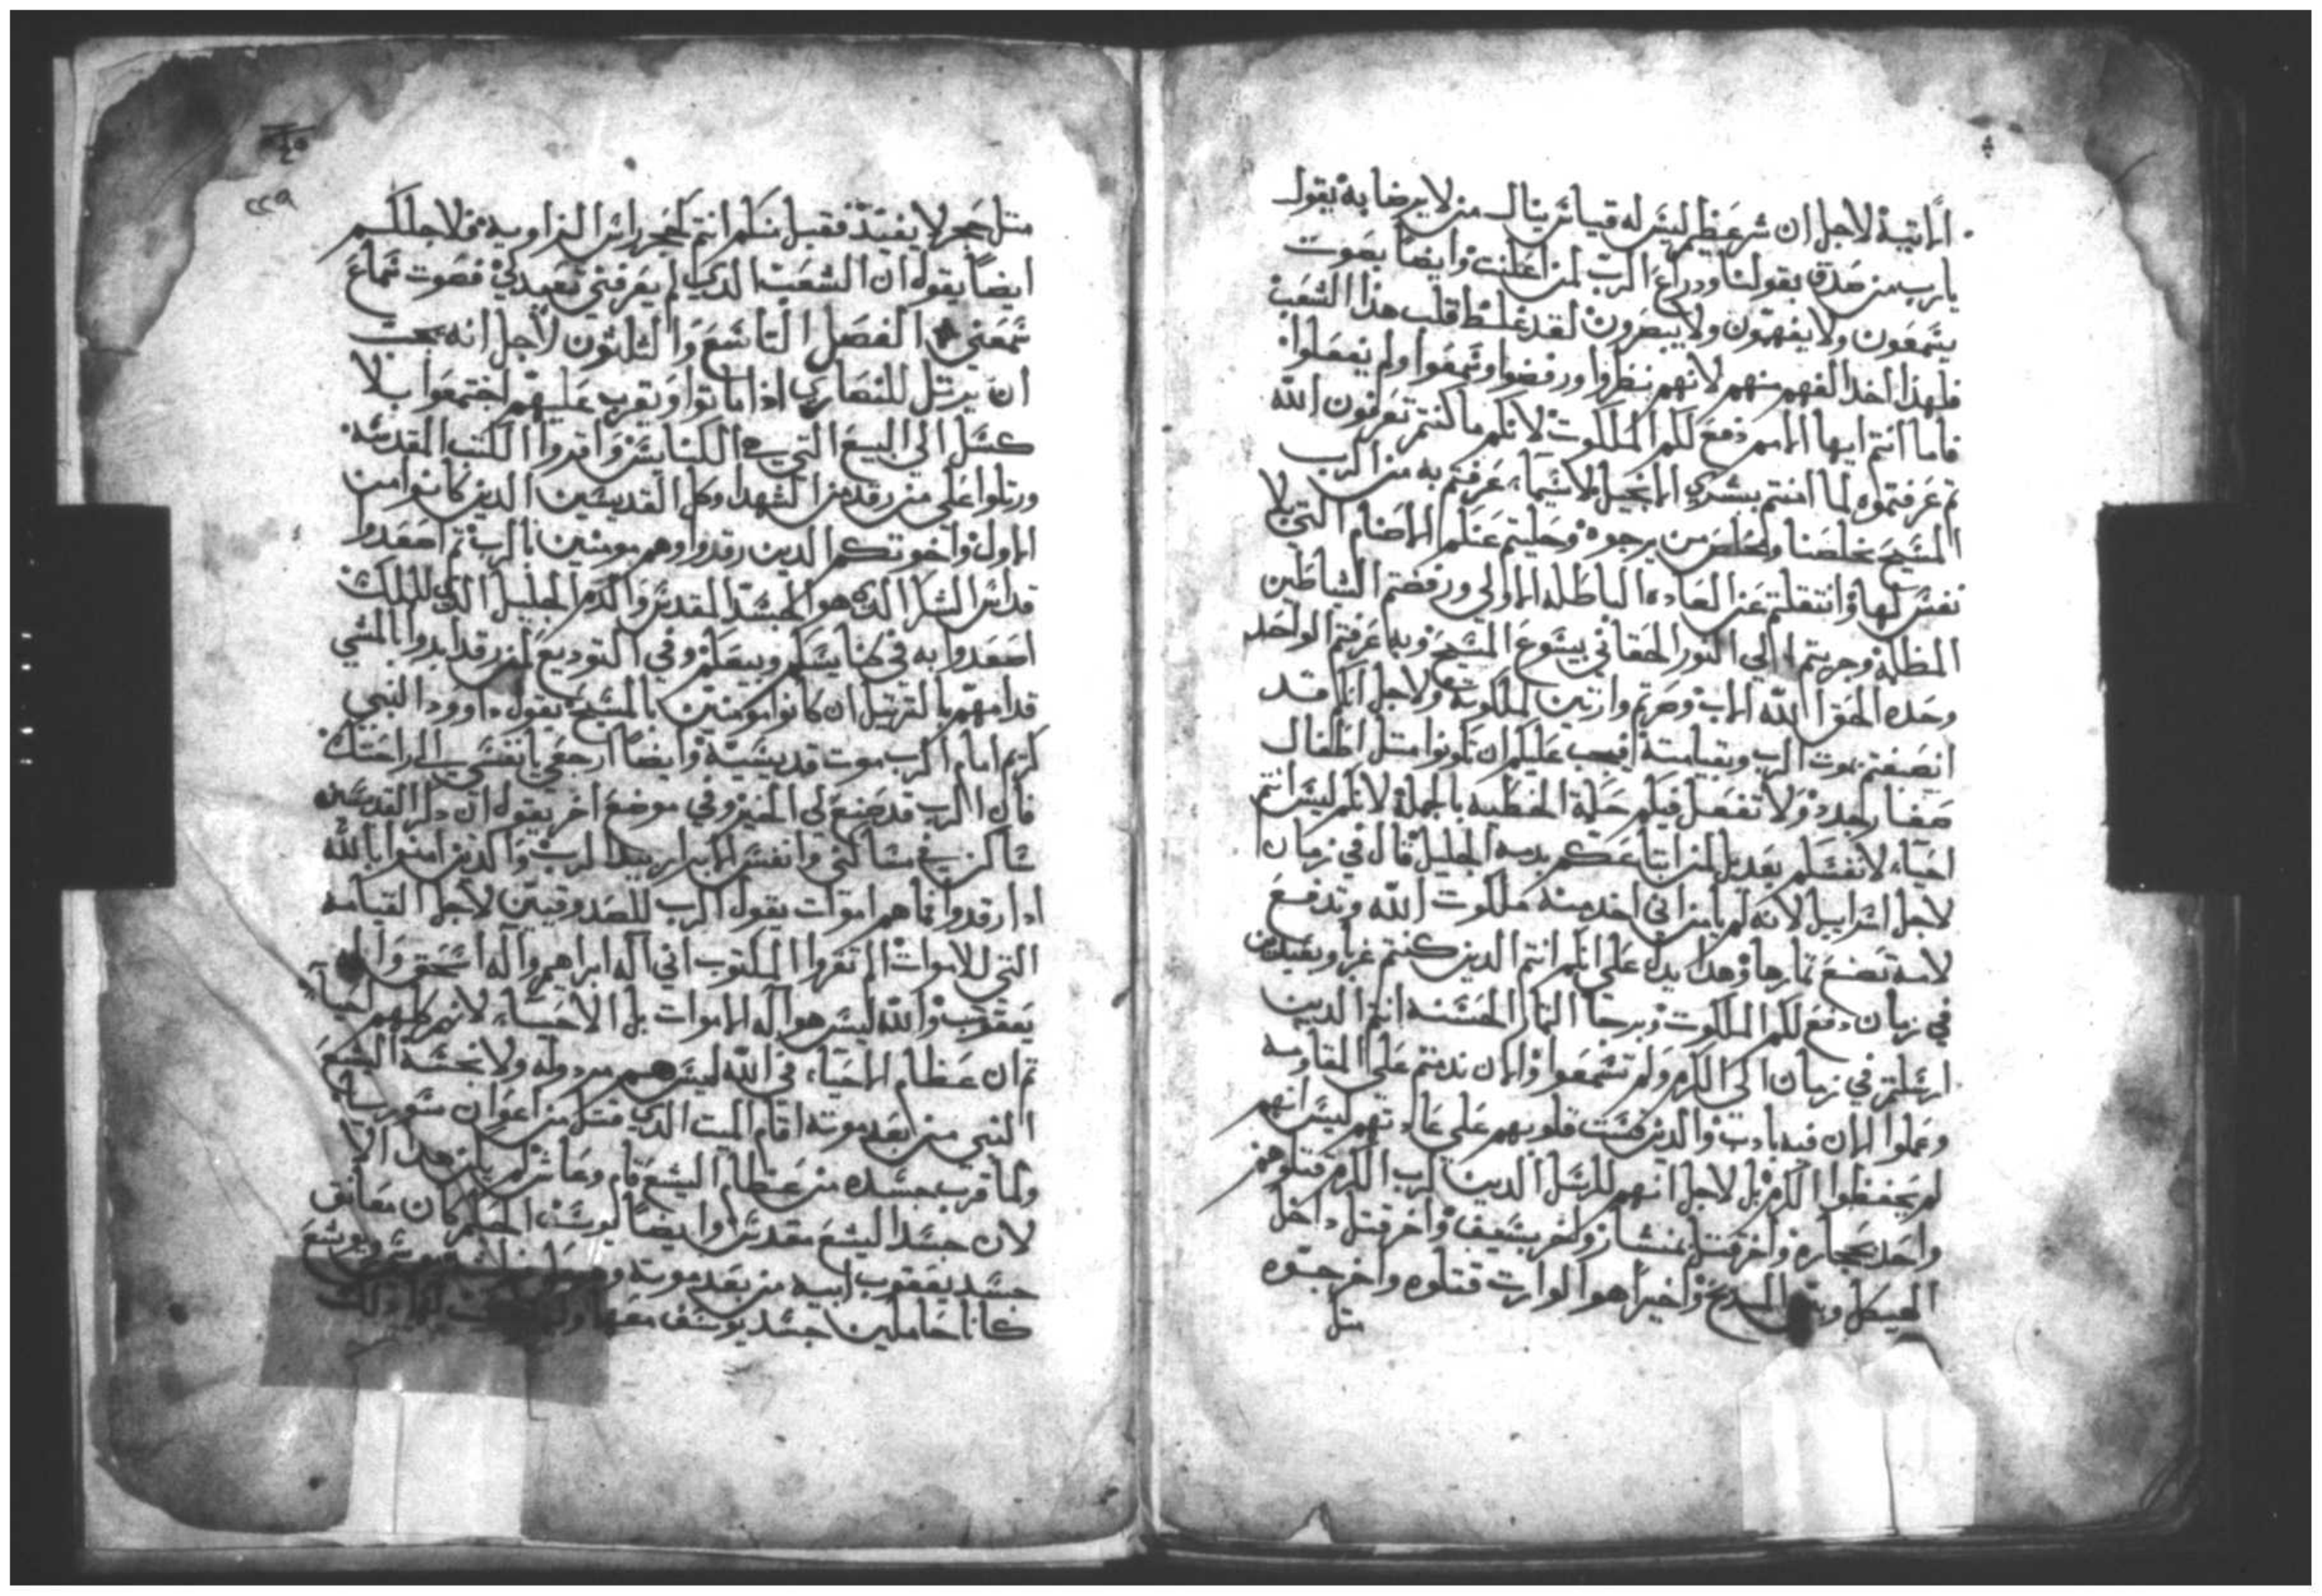 الاتية لاجل ان شر عظيم ليس له قياس ينال من لا يرضا به يقول
يارب من صدق بقولنا ودراع الرب لمن اعلنت وايضا بصوت
يسمعون ولا يفهمون ولا يبصرون لقد غلظ قلب هذا الشعب
فلهذا اخد الفهم منهم لانهم نظروا ورفضوا وسمعوا ولم يفعلوا
فاما انتم ايها الامم دفع لكم الملكوت لانكم ما كنتم تعرفون الله
تم عرفتموه لما امنتم ببشري الانجيل ولا سيما عرفتم به من الرب
المسيح مخلصنا ومخلص من يرجوه وحليتم عنكم الاصنام التي لا
نفس لها وانتقلتم عن العاده الباطله الاولي ورفضتم الشياطين
المظلمة وجريتم الي النور الحقاني يسوع المسيح وبه عرفتم الواحد
وحده الحق الله الاب وصرتم وارتين لملكوته ولاجل انكم قد
انصبغتم بموت الرب وبقيامته فيجب عليكم ان تكونوا متل اطفال
صغار جدد ولا تفعل فيكم حركة الخطيه بالجملة لانكم ليس انتم
احياء لانفسكم بعد بل لمن ابتاعكم بدمه الجليل قال في زمان
لاجل اسراييل لانه لم يامن اني اخد منه ملكوت الله وتدفع
لامة تصنع تمارها وهدا يدل علي انكم انتم الدين كنتم غربا وبعيد من
في زمان دفع لكم الملكوت ويرجا التمار الحسنه انتم الدين
ارسلتم في زمان الي الكرم ولم تسمعوا والان ندمتم علي المقاومه
وعملوا الان فيه بادب والدين قست قلوبهم علي عادتهم ليس انهم
لم يحفظوا الكرم بل لاجل انهم للرسل الدين لرب الكرم قتلوهم
واحد بحجاره واخر قتل بمنشار واخر بسيف واخر قتل داخل
الهيكل والمدبح واخيرا هوا الوارت قتلوه واخرجوه
متل
٢٢٩
متل حجر لا يفيد فقبل منكم انتم كحجر راس الزاوية فلاجلكم
ايضا يقول ان الشعب الدي لم يعرفني تعبد لي فصوت سماع
سمعني الفصل التاسع والتلتون لاجل انه يجب
ان يرتل للنصاري ادا ماتوا ويقرب عليهم اجتمعوا بلا
كسل الي البيع التي في الكنايس واقروا الكتب المقدسه
ورتلوا علي من رقد من الشهدا وكل القديسين الدين كانوا من
الاول واخوتكم الدين رقدوا وهم مومنين بالرب تم اصعدوا
قداس الشكر الدي هوا الجسد المقدس والدم الجليل الدي للملك
اصعدوا به في كنايسكم وبيعكم وفي التوديع لمن رقد ابدوا بالمشي
قدامهم بالترتيل ان كانوا مومنين بالمسيح يقول داوود النبي
كريم امام الرب موت قديسية وايضا ارجعي يا نفسي الي راحتك
فان الرب قد صنع لي الخير وفي موضع اخر يقول ان دكر القديسين
ساكن في مساكني وانفس الابرار بيد الرب والدين امنوا بالله
ادا رقدوا فما هم اموات يقول الرب للصدوقيين لاجل القيامه
التي للاموات الم تقروا المكتوب اني اله ابراهيم واله اسحق واله
يعقوب والله ليس هوا اله الاموات بل الاحياء لانهم كلهم احياء
تم ان عظام الاحياء في الله ليس هم مردوله ولا نجسة اليشع
النبي من بعد موته اقام الميت الدي قتل من اعوان سوريا
ولما قرب جسده من عظام اليشع قام وعاش لم يكن هدا الا
لان جسد اليشع مقدس وايضا يوسف الحكيم كان معانق
جسد يعقوب ابيه من بعد موته ويوشع
كانا حاملين جسد يوسف معهما دلك